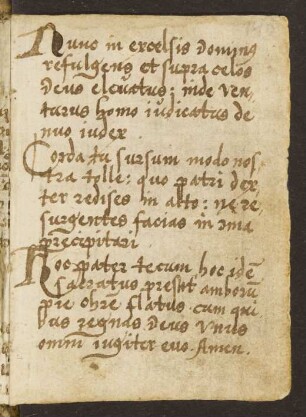 Nunc in excelsis dominus
refulgens et supra celos
deus eleuatus: inde ven-
turus homo iudicatus de
nuo iuder
Corda tu sursum modo nos
tra tolle: quo patri dex
ter redises in alto: ne re
surgentes facias in ima
precipitari
Hoc pater tecum hoc idē
sacratus presta amborū
pie flatus cum qui
bus regnas deus vnus
omni iugiter euo. Amen.